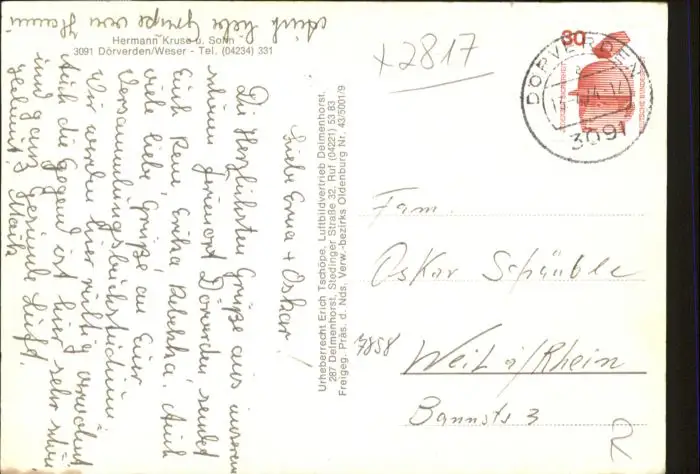 Hermann Kruse u. Sohn
3091 Dörverden/Weser - Tel. (04234) 331
Liebe Erna + Oskar!
Die Herzlichsten Grüße aus unserem
schönen Ferienort Dörverden sendet
Euch Rene, Erika Rebekka. Auch
viele liebe Grüße an Euer
Wir werden hier richtig verwöhnt
Auch die Gegend ist hier sehr schön
und ganz gesunde Luft.
auch liebe Grüße von
Urheberrecht Erich Tschöpe, Luftbildvertrieb Delmenhorst.
287 Delmenhorst, Stedinger Straße 32, Ruf (04221) 53 83
Freigeg. Präs. d. Nds. Verw.-bezirks Oldenburg Nr. 43/5001/9
x 2817
30
DEUTSCHE BUNDESPOST
DÖRVERDEN
3091
Fam.
Oskar Schäuble
7858 Weil a/Rhein
Bannstr 3